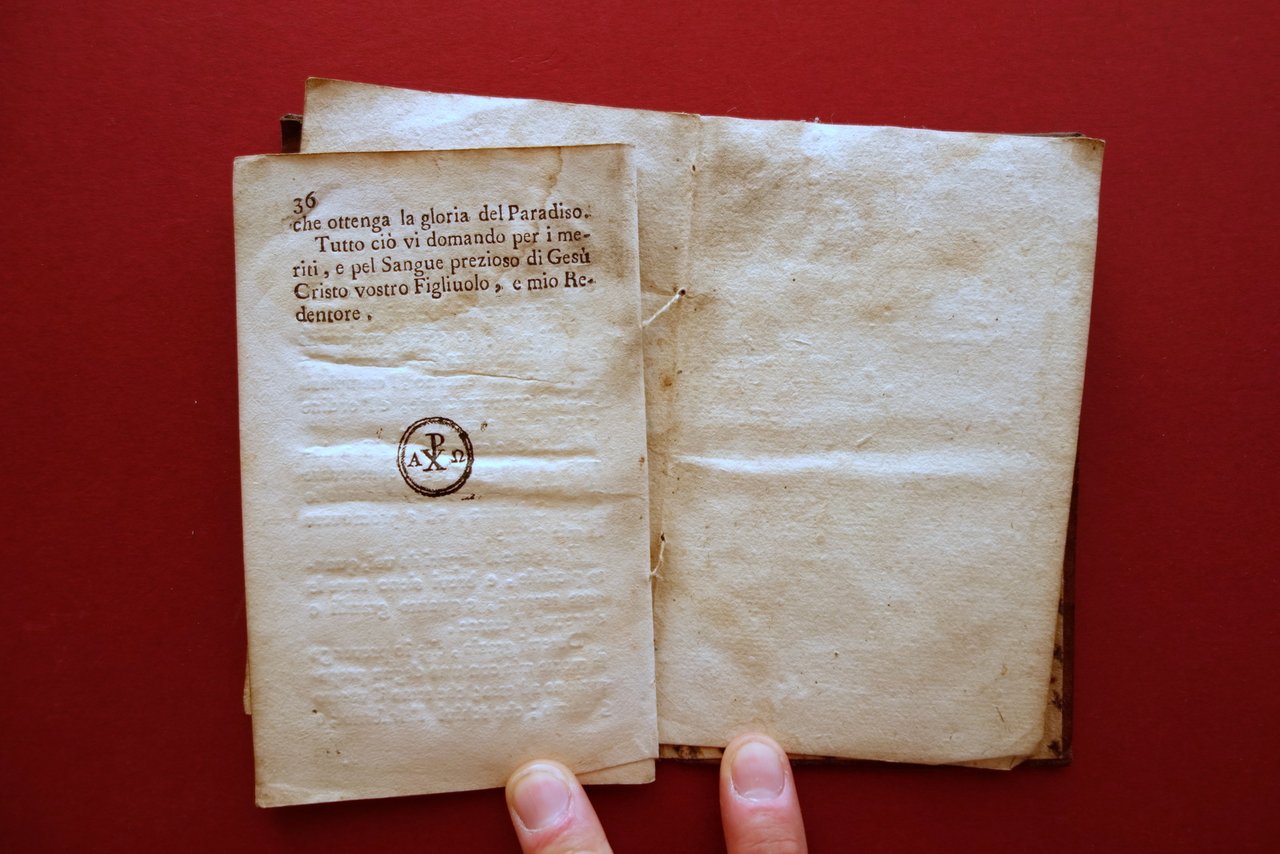 36
che ottenga la gloria del Paradiso.
Tutto ciò vi domando per i me-
riti, e pel Sangue prezioso di Gesù
Cristo vostro Figliuolo, e mio Re-
dentore.
P
A X Ω